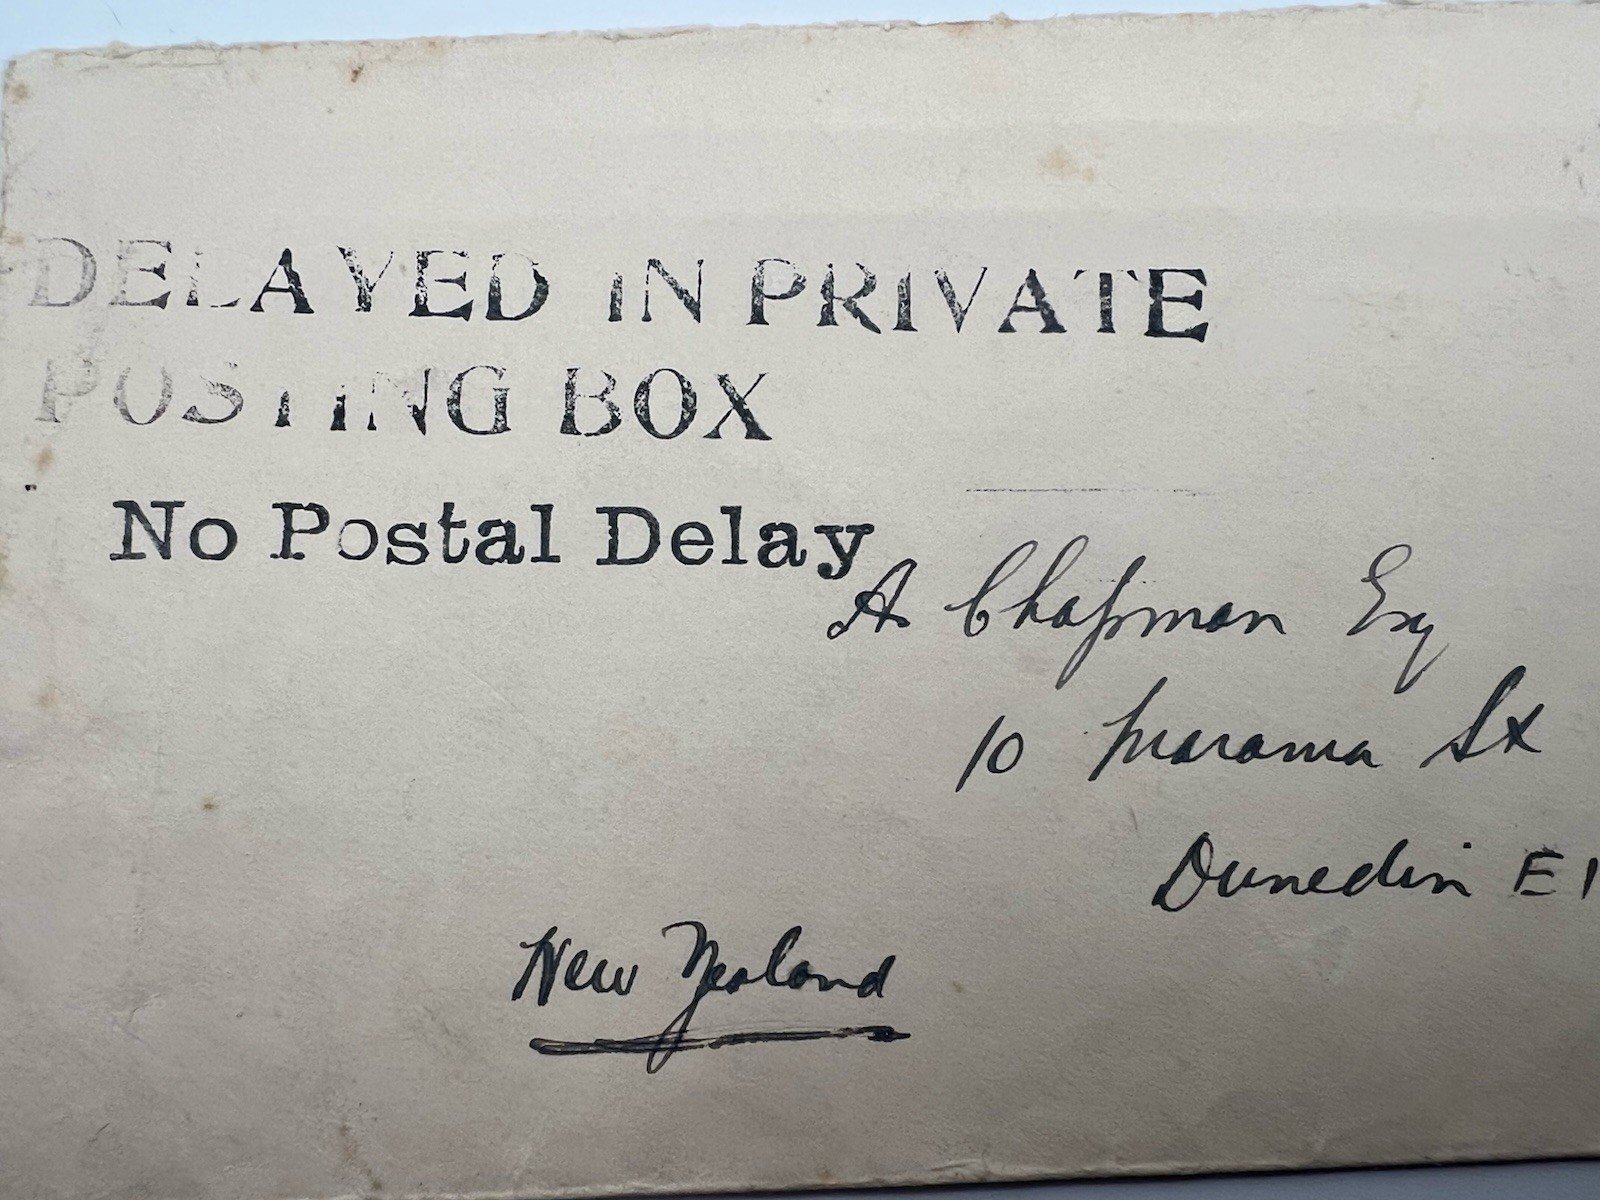 DELAYED IN PRIVATE
POSTING BOX
No Postal Delay
A Chapman Esq
10 Marama St
Dunedin E1
New Zealand